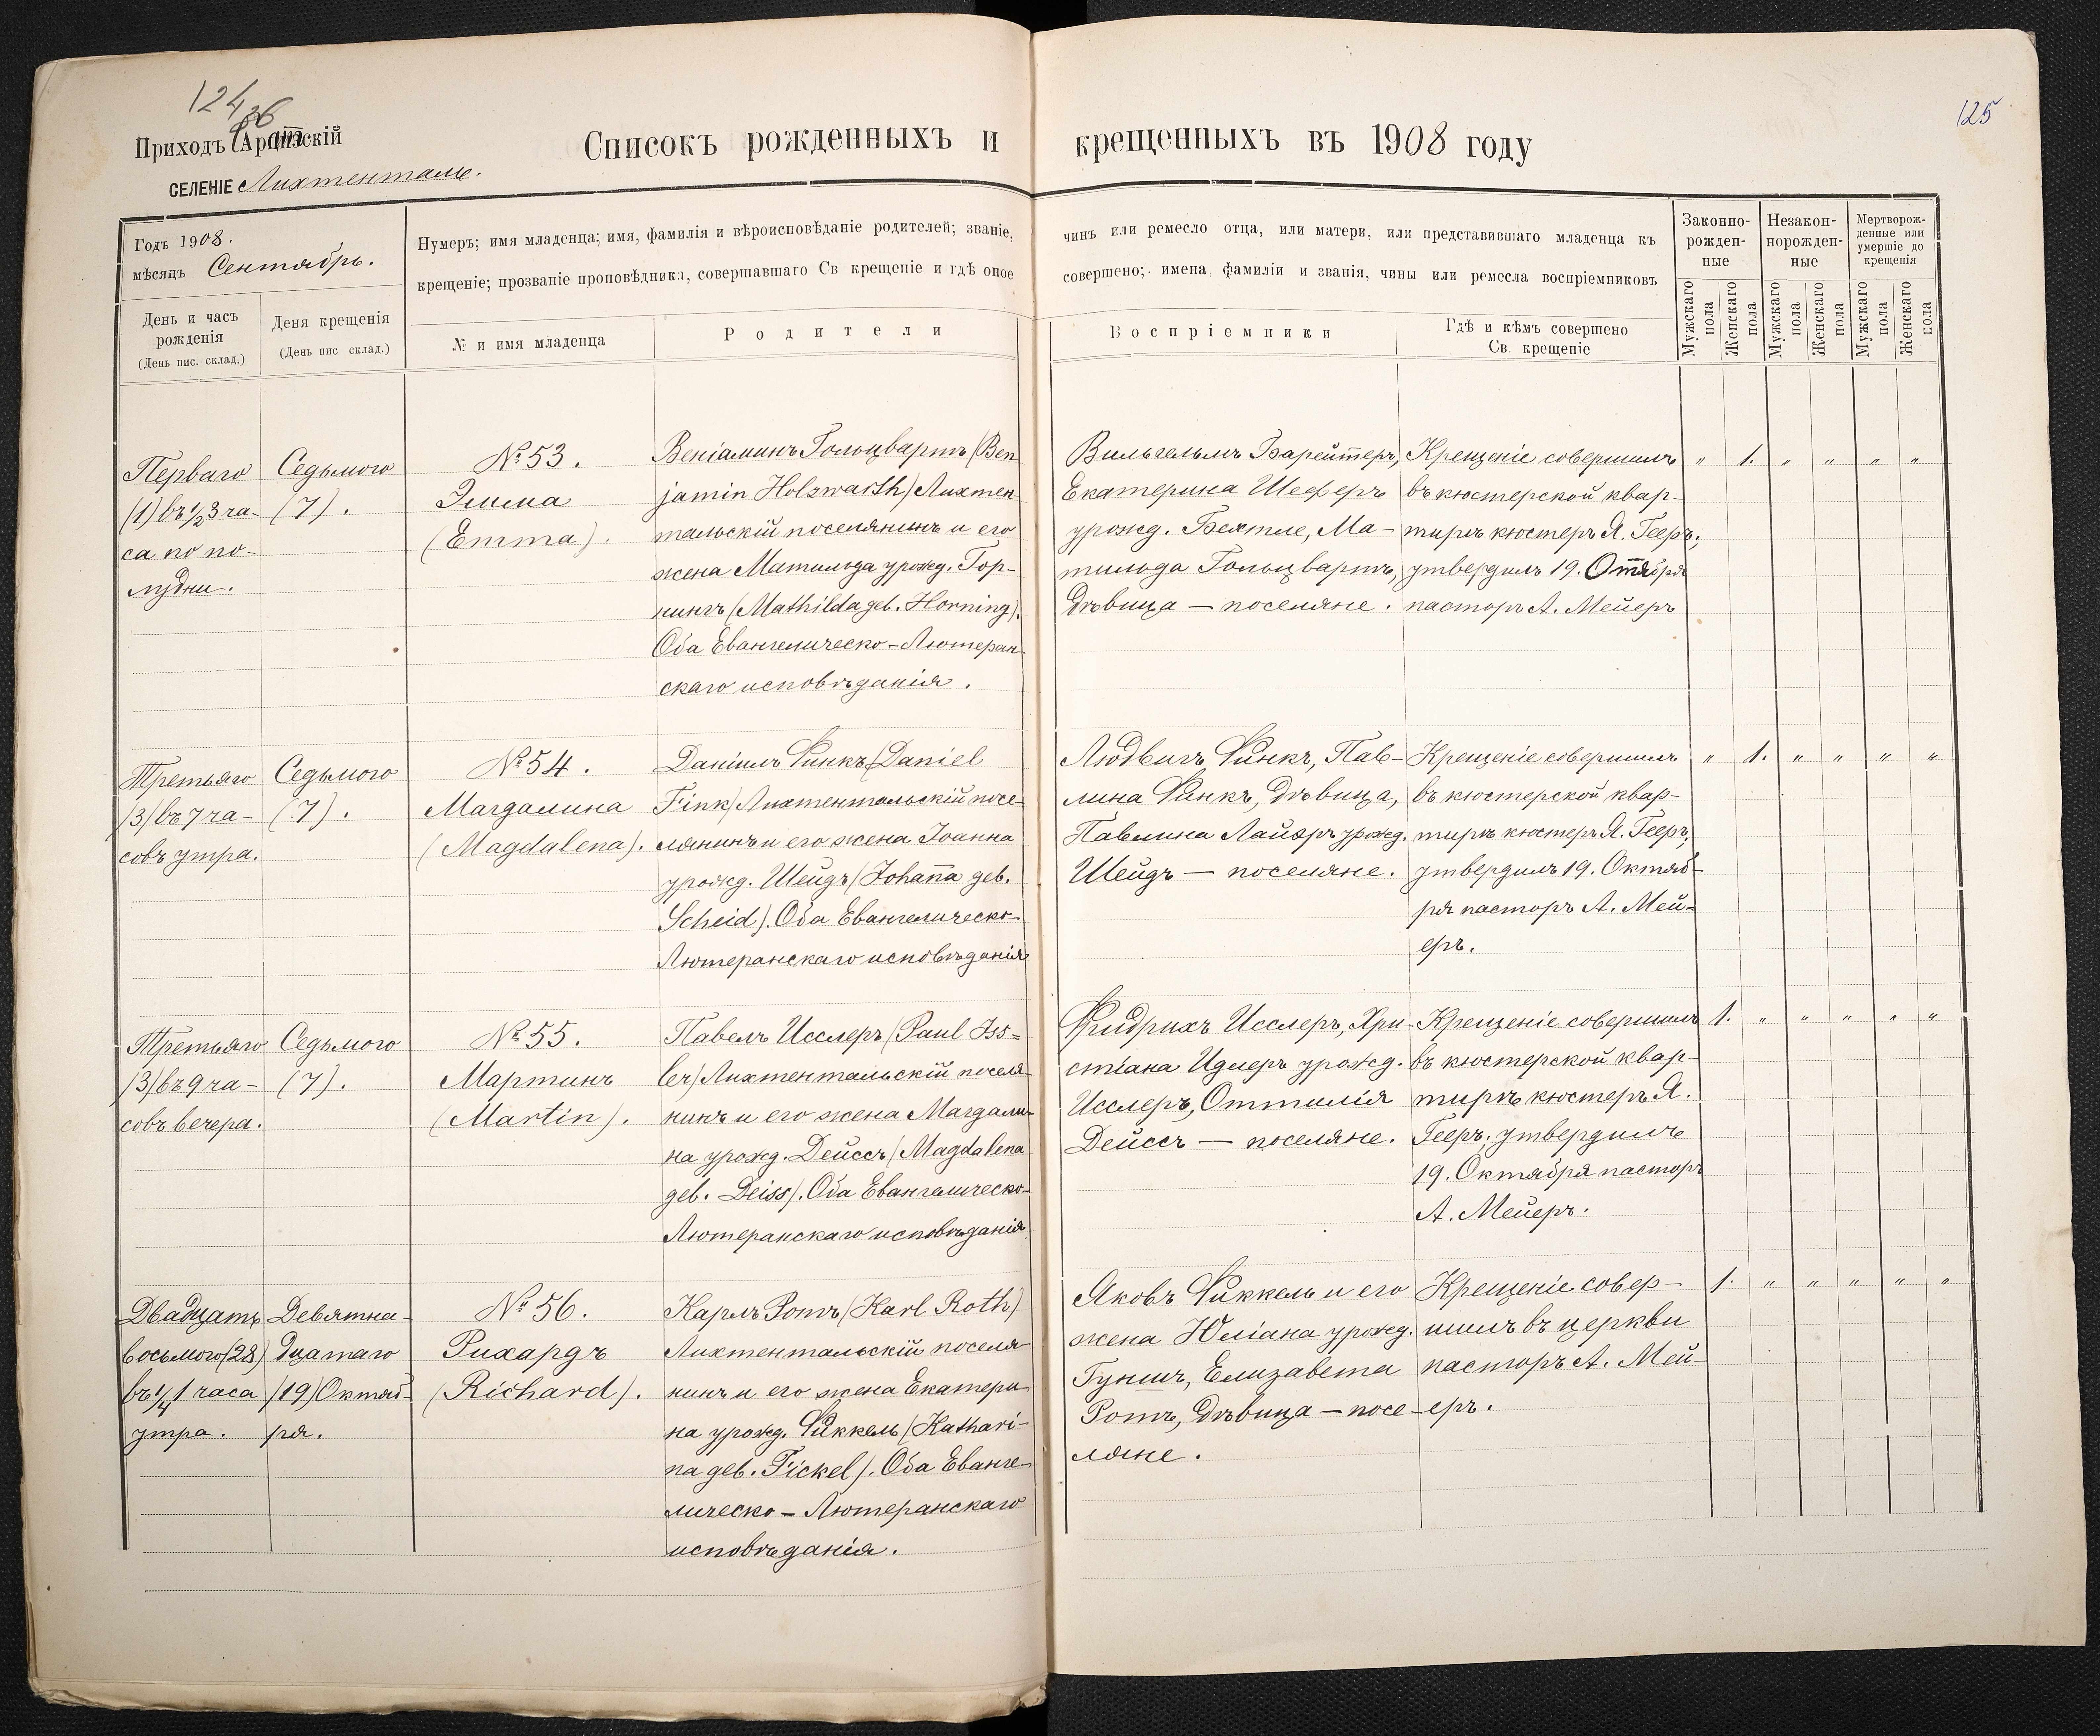 124
125
Приходъ Арцизскій
СЕЛЕНІЕ Лихтенталь.
Списокъ рожденныхъ и крещенныхъ въ 1908 году
Годъ 1908.
мѣсяцъ Сентябрь.
День и часъ
рожденія
(День пис. склад.)
Деня крещенія
(День пис склад.)
Нумеръ; имя младенца; имя, фамилія и вѣроисповѣданіе родителей; званіе,
крещеніе; прозваніе проповѣдника, совершавшаго Св крещеніе и гдѣ оное
№ и имя младенца
Родители
чинъ или ремесло отца, или матери, или представившаго младенца къ
совершено; имена фамиліи и званія, чины или ремесла воспріемниковъ
Воспріемники
Гдѣ и кѣмъ совершено
Св. крещеніе
Законно-
рожден-
ные
Незакон-
норожден-
ные
Мертворож-
денные или
умершіе до
крещенія
Мужскаго
пола
Женскаго
пола
Мужскаго
пола
Женскаго
пола
Мужскаго
пола
Женскаго
пола
Перваго
(1) въ 1/2 3 ча-
са по по-
лудни.
Седьмого
(7).
№ 53.
Эмма
(Emma).
Веніаминъ Гольцвартъ (Ben
jamin Holzwarth) Лихтен-
тальскій поселянинъ и его
жена Матильда урожд. Гор-
нингъ (Mathilda geb. Horning).
Оба Евангелическо-Лютеран-
скаго исповѣданія.
Вильгельмъ Барейтеръ,
Екатерина Шеферъ
урожд. Бехтле, Ма-
тильда Гольцвартъ,
дѣвица — поселяне.
Крещеніе совершилъ
въ кюстерской квар-
тирѣ кюстеръ Я. Гееръ;
утвердилъ 19. Октября
пасторъ А. Мейеръ
" 1. " " " "
Третьяго
(3) въ 7 ча-
совъ утра.
Седьмого
(7).
№ 54.
Магдалина
(Magdalena).
Даніилъ Финкъ (Daniel
Fink) Лихтентальскій посе-
лянинъ и его жена Іоанна
урожд. Шейдъ (Johanna geb.
Scheid). Оба Евангелическо-
Лютеранскаго исповѣданія
Людвигъ Финкъ, Пав-
лина Финкъ, дѣвица,
Павлина Лайеръ урожд.
Шейдъ — поселяне.
Крещеніе совершилъ
въ кюстерской квар-
тирѣ кюстеръ Я. Гееръ;
утвердилъ 19. Октяб-
ря пасторъ А. Мей-
еръ.
" 1. " " " "
Третьяго
(3) въ 9 ча-
совъ вечера.
Седьмого
(7).
№ 55.
Мартинъ
(Martin).
Павелъ Исслеръ (Paul Iss=
ler) Лихтентальскій поселя-
нинъ и его жена Магдали-
на урожд. Дейссъ (Magdalena
geb. Deiss). Оба Евангелическо-
Лютеранскаго исповѣданія.
Фридрихъ Исслеръ, Хри-
стіана Идлеръ урожд.
Исслеръ, Оттилія
Дейссъ — поселяне.
Крещеніе совершилъ
въ кюстерской квар-
тирѣ кюстеръ Я.
Гееръ; утвердилъ
19. Октября пасторъ
А. Мейеръ.
1. " " " " "
Двадцать
восьмого (28)
въ 1/4 1 часа
утра.
Девятна-
дцатаго
(19) Октяб-
ря.
№ 56.
Рихардъ
(Richard).
Карлъ Ротъ (Karl Roth)
Лихтентальскій поселя-
нинъ и его жена Екатери-
на урожд. Фиккель (Kathari-
na geb. Fickel). Оба Еванге-
лическо-Лютеранскаго
исповѣданія.
Яковъ Фиккель и его
жена Юліана урожд.
Гуншъ, Елизавета
Ротъ, дѣвица — посе-
ляне.
Крещеніе совер-
шилъ въ церкви
пасторъ А. Мей-
еръ.
1. " " " " "